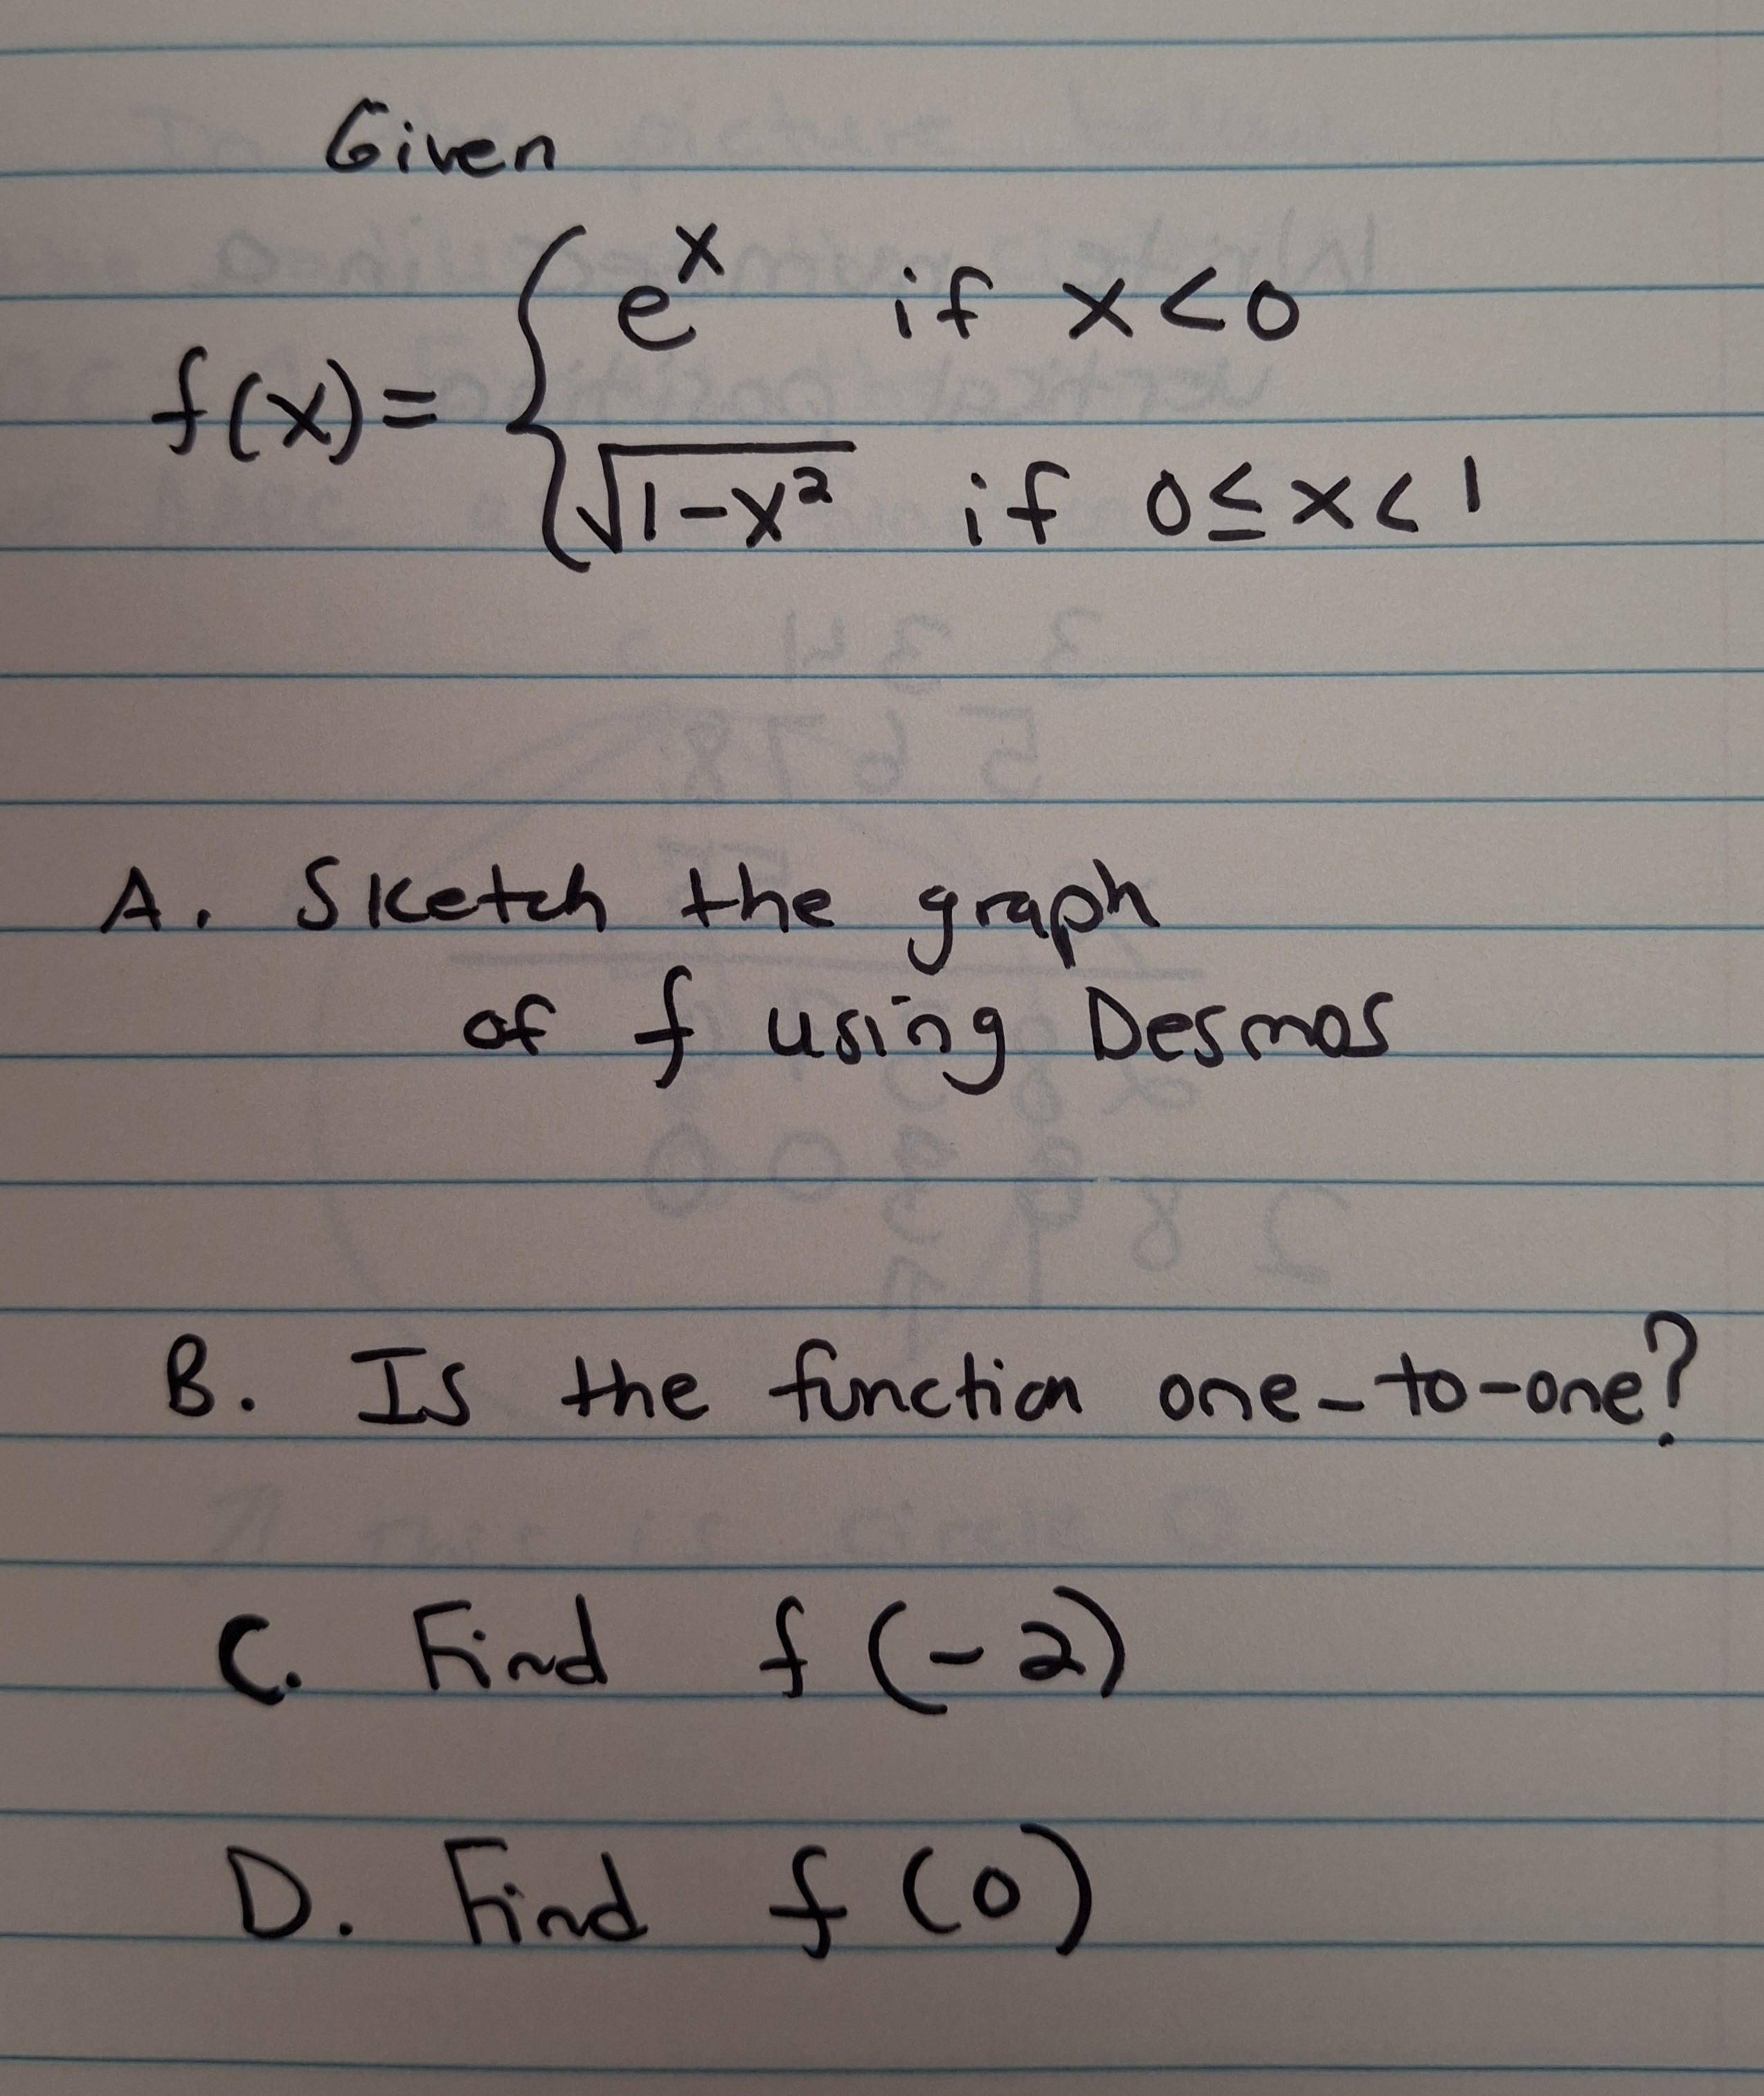 Given
f(x) = { e^x if x < 0
√(1-x²) if 0 ≤ x < 1
A. Sketch the graph
of f using Desmos
B. Is the function one-to-one?
C. Find f(-2)
D. Find f(0)